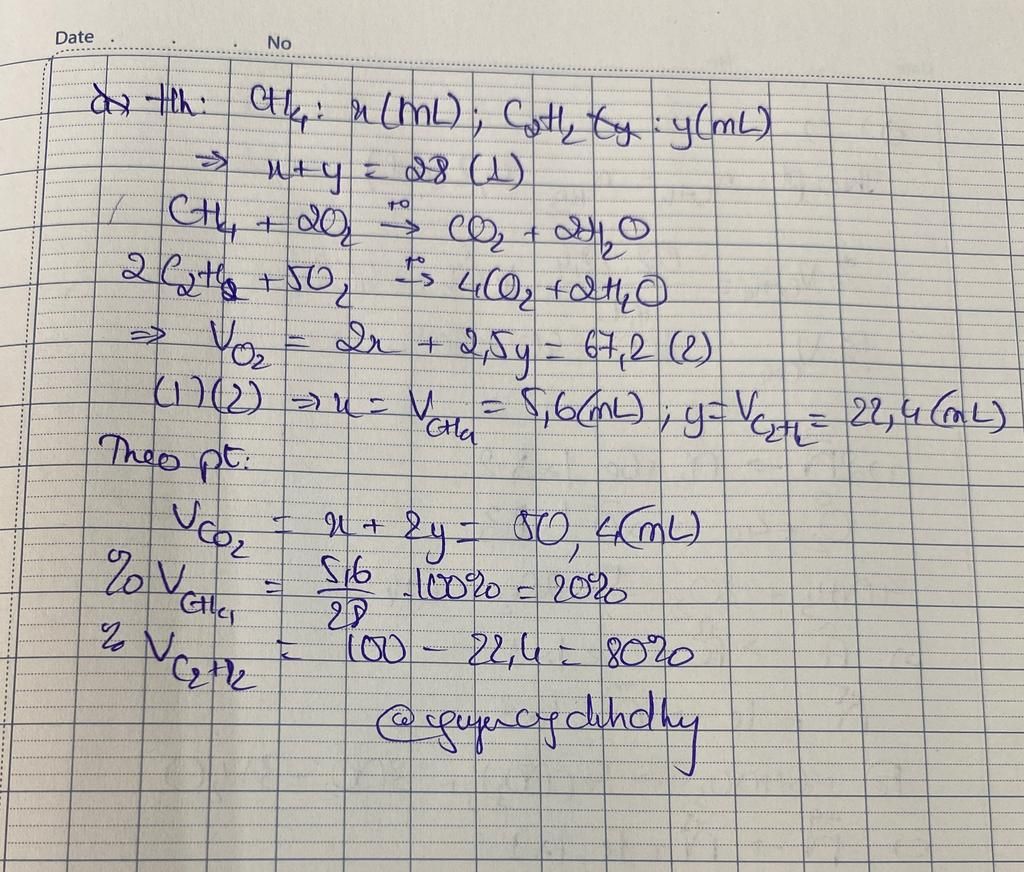 Date . . . No
hh: CH4: x(mL); C2H2 : y(mL)
⇒ x+y = 28 (1)
CH4 + 2O2 →(t°) CO2 + 2H2O
2C2H2 + 5O2 →(t°) 4CO2 + 2H2O
⇒ VO2 = 2x + 2,5y = 67,2 (2)
(1)(2) ⇒ x = VCH4 = 5,6(mL); y = VC2H2 = 22,4(mL)
Theo pt:
VCO2 = x + 2y = 50,4(mL)
%VCH4 = 5,6/28 .100% = 20%
%VC2H2 = 100 - 22,4 = 80%